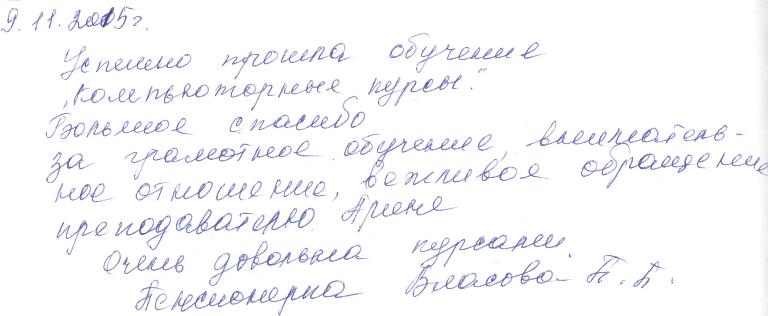 9.11.2015г.
Успешно прошла обучение
„Компьюторные курсы."
Большое спасибо
за грамотное обучение, вниматель-
ное отношение, вежливое обращение
преподавателю Арине
Очень довольна курсами.
Пенсионерка Власова П.Б.